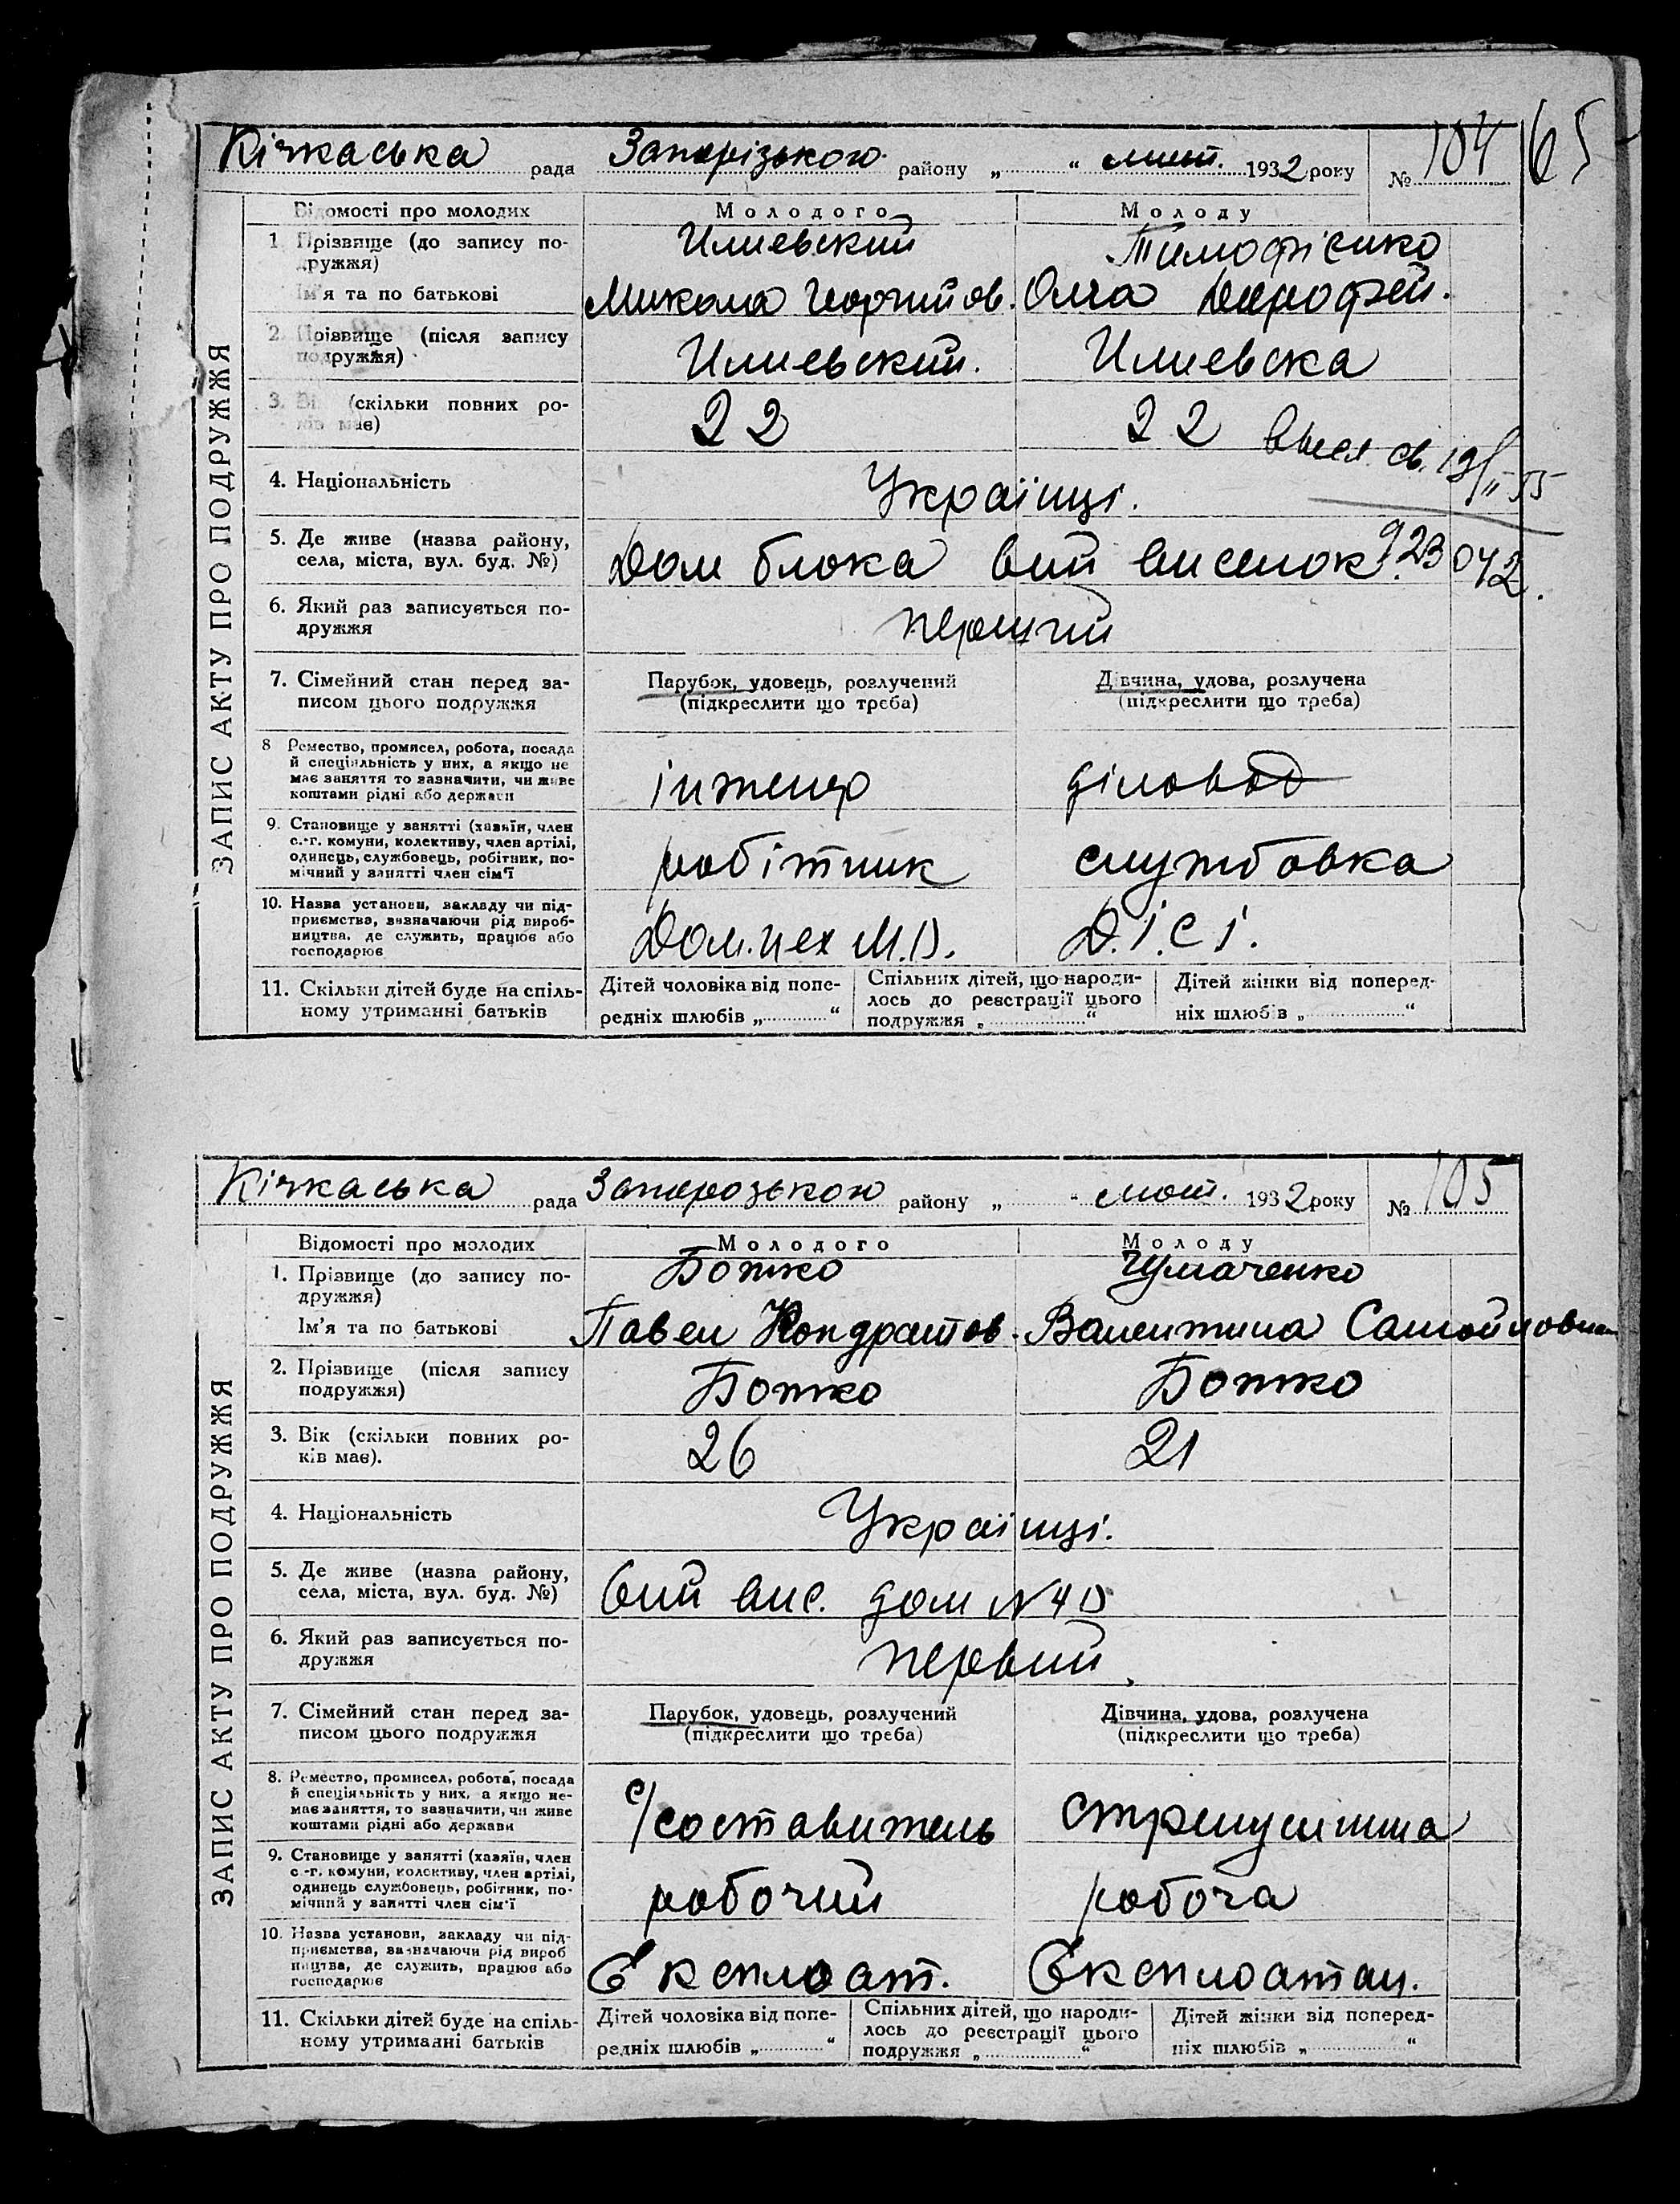 Кічкаська рада Запорізького району „ “ лют. 1932 року № 104 65
ЗАПИС АКТУ ПРО ПОДРУЖЖЯ
Відомості про молодих Молодого Молоду
1. Прізвище (до запису по-
дружжя) Илиевский Тимофієнко
Ім'я та по батькові Микола Ольга Дорофей.
2. Прізвище (після запису
подружжя) Илиевский. Илиевска
3. Вік (скільки повних ро-
ків має) 22 22
св. 19/II-55
4. Національність Українці.
5. Де живе (назва району,
села, міста, вул. буд. №) Дом блока 6ий виселок. 923042.
6. Який раз записується по-
дружжя перший
7. Сімейний стан перед за-
писом цього подружжя Парубок, удовець, розлучений
(підкреслити що треба) Дівчина, удова, розлучена
(підкреслити що треба)
8 Ремество, промисел, робота, посада
й спеціяльність у них, а якщо не
має заняття то зазначити, чи живе
коштами рідні або держави інженер діловод
9. Становище у занятті (хазяїн, член
с.-г. комуни, колективу, член артілі,
одинець, службовець, робітник, по-
мічний у занятті член сім'ї робітник службовка
10. Назва установи, закладу чи під-
приємства, визначаючи рід вироб-
ництва, де служить, працює або
господарює Дом. цех Д.І.С.І.
11. Скільки дітей буде на спіль-
ному утриманні батьків Дітей чоловіка від попе-
редніх шлюбів „ “ Спільних дітей, що народи-
лось до реєстрації цього
подружжя „ “ Дітей жінки від поперед-
ніх шлюбів „ “
Кічкаська рада Запорозького району „ “ лют. 1932 року № 105
ЗАПИС АКТУ ПРО ПОДРУЖЖЯ
Відомості про молодих Молодого Молоду
1. Прізвище (до запису по-
дружжя) Божко Чумаченко
Ім'я та по батькові Павел Кондратов. Валентина Самойловна
2. Прізвище (після запису
подружжя) Божко Божко
3. Вік (скільки повних ро-
ків має). 26 21
4. Національність Українці.
5. Де живе (назва району,
села, міста, вул. буд. №) 6ий вис. дом N 40
6. Який раз записується по-
дружжя первий
7. Сімейний стан перед за-
писом цього подружжя Парубок, удовець, розлучений
(підкреслити що треба) Дівчина, удова, розлучена
(підкреслити що треба)
8. Ремество, промисел, робота, посада
й спеціяльність у них, а якщо не-
має заняття, то зазначити, чи живе
коштами рідні або держави с/составитель
9. Становище у занятті (хазяїн, член
с.-г. комуни, колективу, член артілі,
одинець службовець, робітник, по-
мічний у занятті член сім'ї робочий робоча
10. Назва установи, закладу чи під-
приємства, визначаючи рід вироб
ництва, де служить, працює або
господарює Експлоат. Експлоатац.
11. Скільки дітей буде на спіль-
ному утриманні батьків Дітей чоловіка від попе-
редніх шлюбів „ “ Спільних дітей, що народи-
лось до реєстрації цього
подружжя „ “ Дітей жінки від поперед-
ніх шлюбів „ “